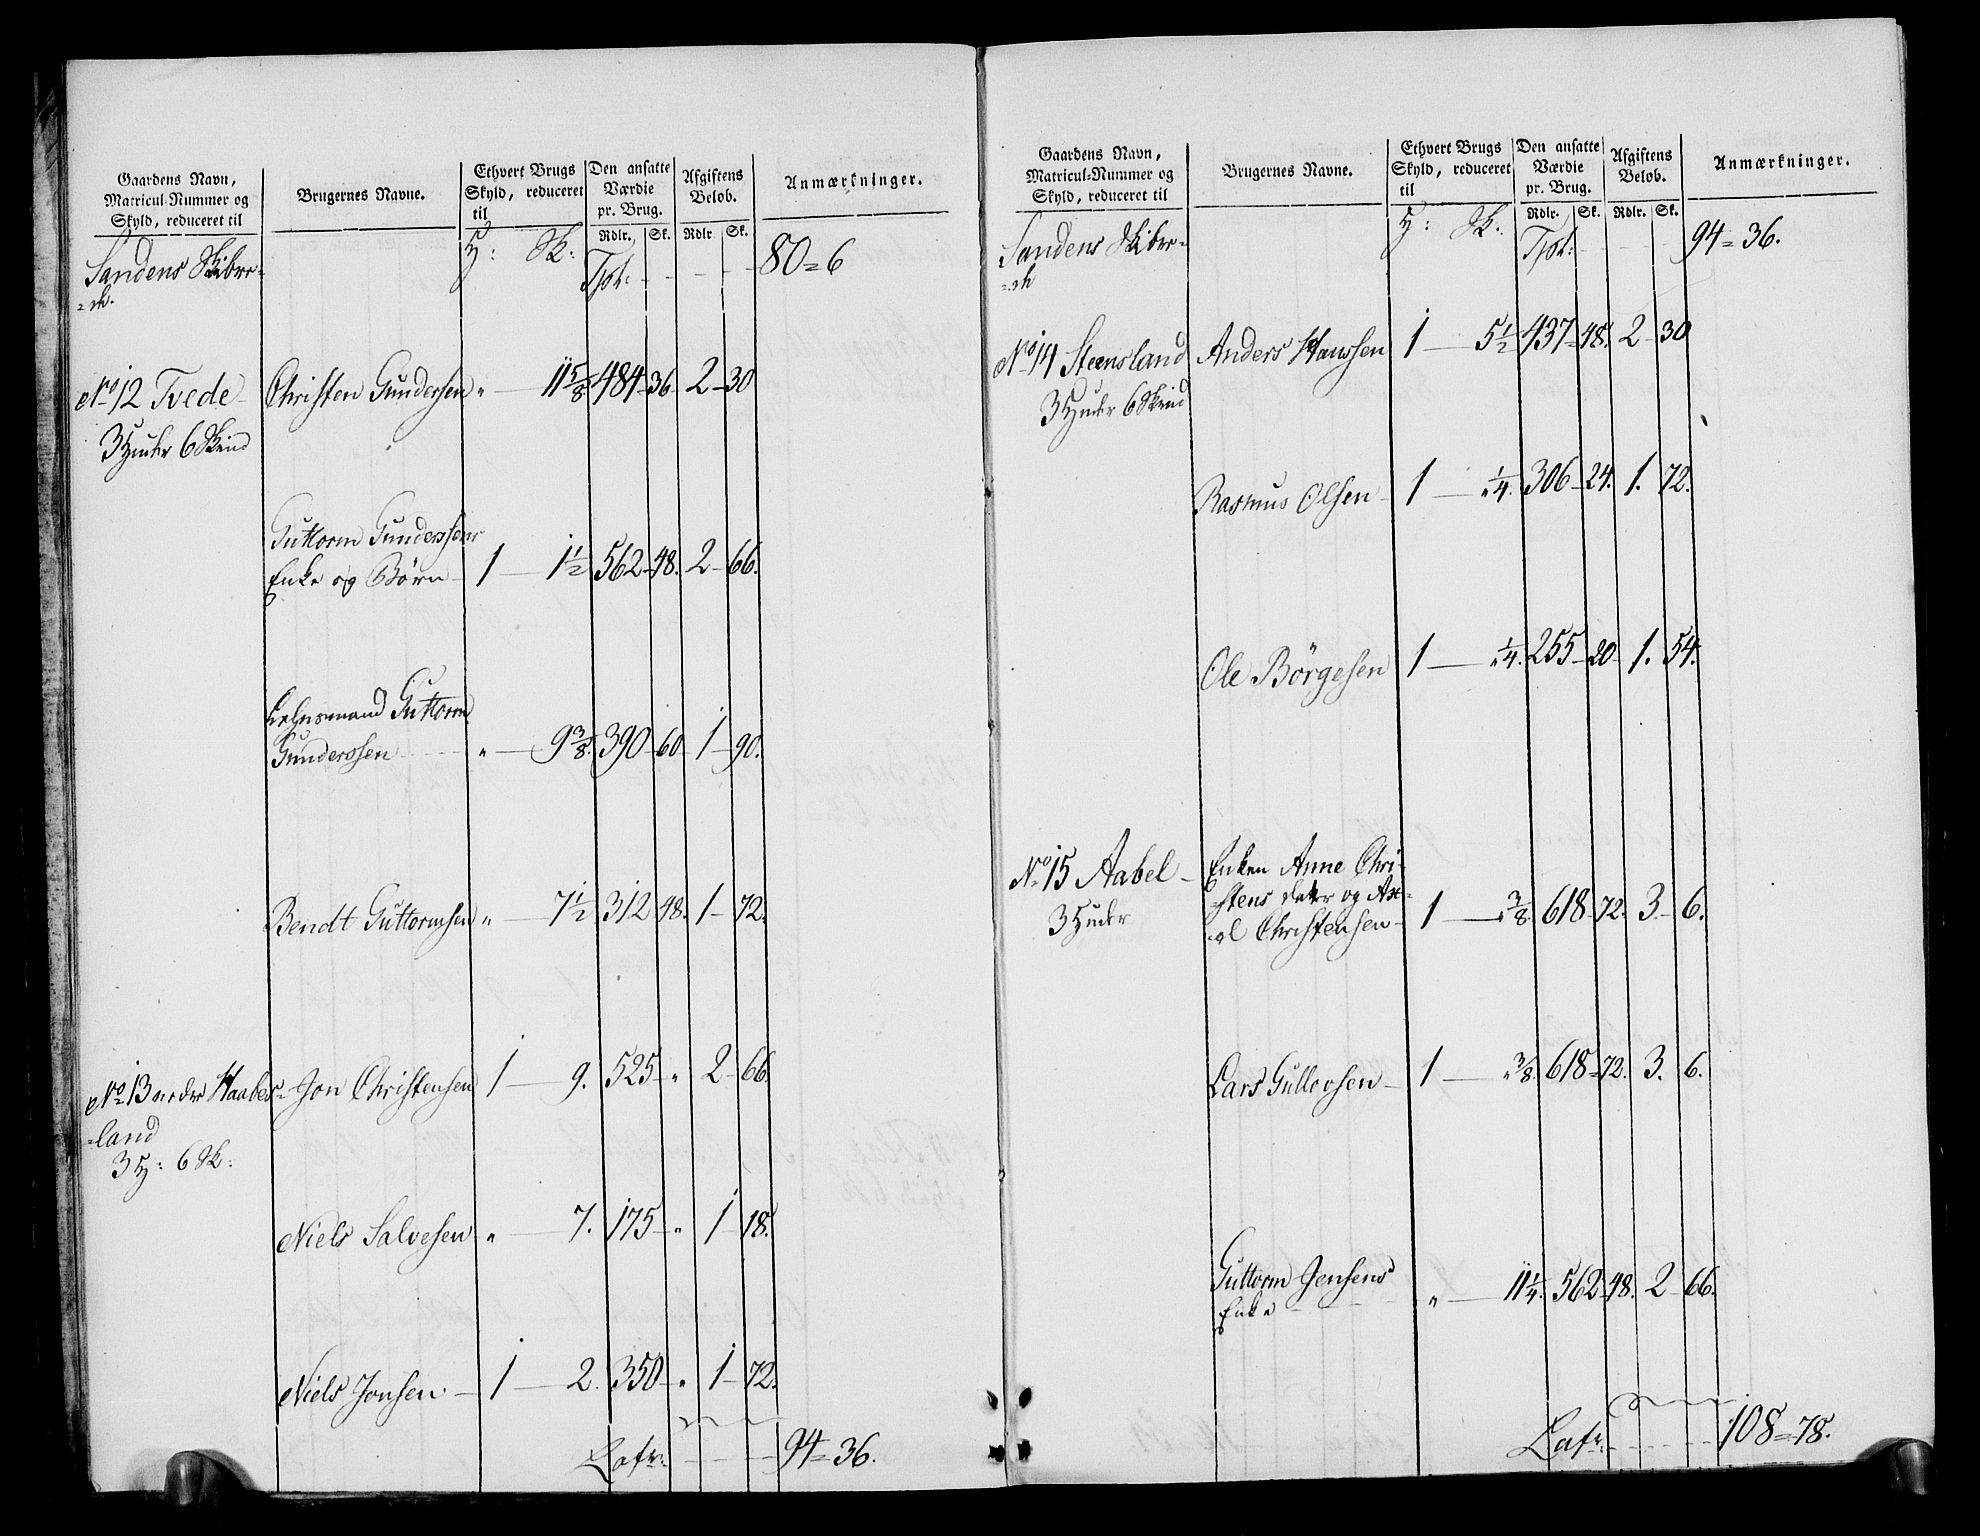 Gaardens Navn,
Matricul-Nummer og
Skyld, reduceret til
Brugernes Navne.
Ethvert Brugs
Skyld, reduceret
til
Den ansatte
Værdie
pr. Brug.
Afgiftens
Beløb.
Anmærkninger.
Rdlr. Sk. Rdlr Sk.
Sandens Skibre-
=de.
H: Sk:
Tpt: 80=6
No 12 Tvede Christen Gundersen „ 11 5/8 484 36 2 30
3 Huder 6 Skind
Guttorm Gunderssens
Enke og Børn 1 1 1/2 562 48. 2 66.
Lehnsmand Guttorm
Gunderssen „ 9 3/8 390 60 1 90.
Bendt Guttormsen „ 7 1/2 312 48. 1 72.
No 13 nedre Haabes- Jon Christensen 1 9. 525 „ 2 66
=land
3 H: 6 Sk:
Niels Salvesen „ 7. 175 „ 1 18.
Niels Jonsen 1 2. 350 „ 1 72.
Latr: 94=36.
Gaardens Navn,
Matricul-Nummer og
Skyld, reduceret til
Brugernes Navne.
Ethvert Brugs
Skyld, reduceret
til
Den ansatte
Værdie
pr. Brug.
Afgiftens
Beløb.
Anmærkninger.
Rdlr. Sk. Rdlr. Sk.
Sandens Skibre-
=de
H: Sk:
Tpt: 94=36.
No 14 Steensland Anders Hanssen 1 5 1/2 437 48. 2 30
3 Huder 6 Skind
Rasmus Olsen 1 „ 1/4. 306 24. 1. 72.
Ole Börgesen 1 „ 1/4. 255 20 1. 54.
No 15 Aabel Enken Anne Chri-
3 Huder stens dater og Ax-
=el Christensen 1 „ 3/8 618 72. 3 6.
Lars Gullovsen 1 „ 3/8. 618 72. 3. 6.
Guttorm Jensens
Enke „ 11 1/4. 562 48. 2 66.
Latr: 108=78.